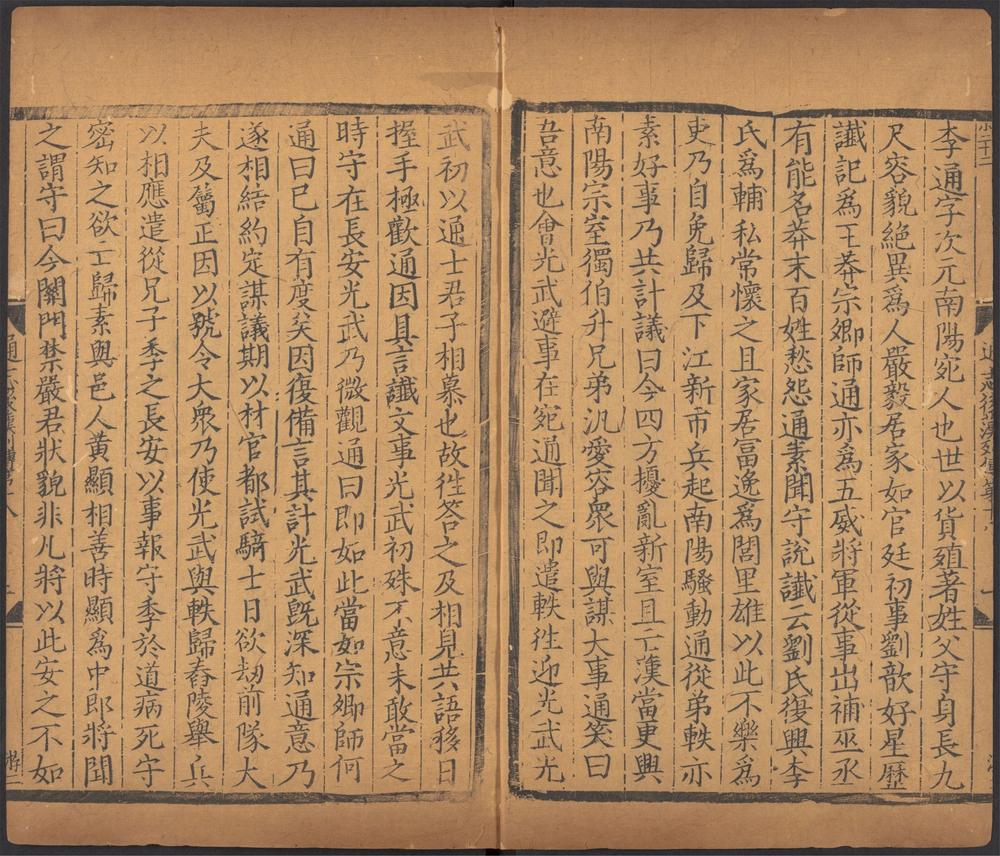 李通字次元南陽宛人也世以貨殖著姓父守身長九
尺容貌絶異為人嚴毅居家如官廷初事劉歆好星曆
讖記為王莽宗卿師通亦為五威將軍從事出補巫丞
有能名莽末百姓愁怨通素聞守說讖云劉氏復興李
氏為輔私常懷之且家居富逸為閭里雄以此不樂為
吏乃自免歸及下江新市兵起南陽騷動通從弟軼亦
素好事乃共計議曰今四方擾亂新室且亡漢當更興
南陽宗室獨伯升兄弟汎愛容衆可與謀大事通笑曰
吾意也會光武避事在宛通聞之即遣軼徃迎光武光
武初以通士君子相慕也故徃荅之及相見共語移日
握手極歡通因具言讖文事光武初殊不意未敢當之
時守在長安光武乃微觀通曰即如此當如宗卿師何
通曰已自有度矣因復備言其計光武旣深知通意乃
遂相結約定謀議期以材官都試騎士日欲劫前隊大
夫及屬正因以號令大衆乃使光武與軼歸舂陵舉兵
以相應遣從兄子季之長安以事報守季於道病死守
密知之欲亡歸素與邑人黃顯相善時顯為中郎將聞
之謂守曰今關門禁嚴君狀貌非凡將以此安之不如